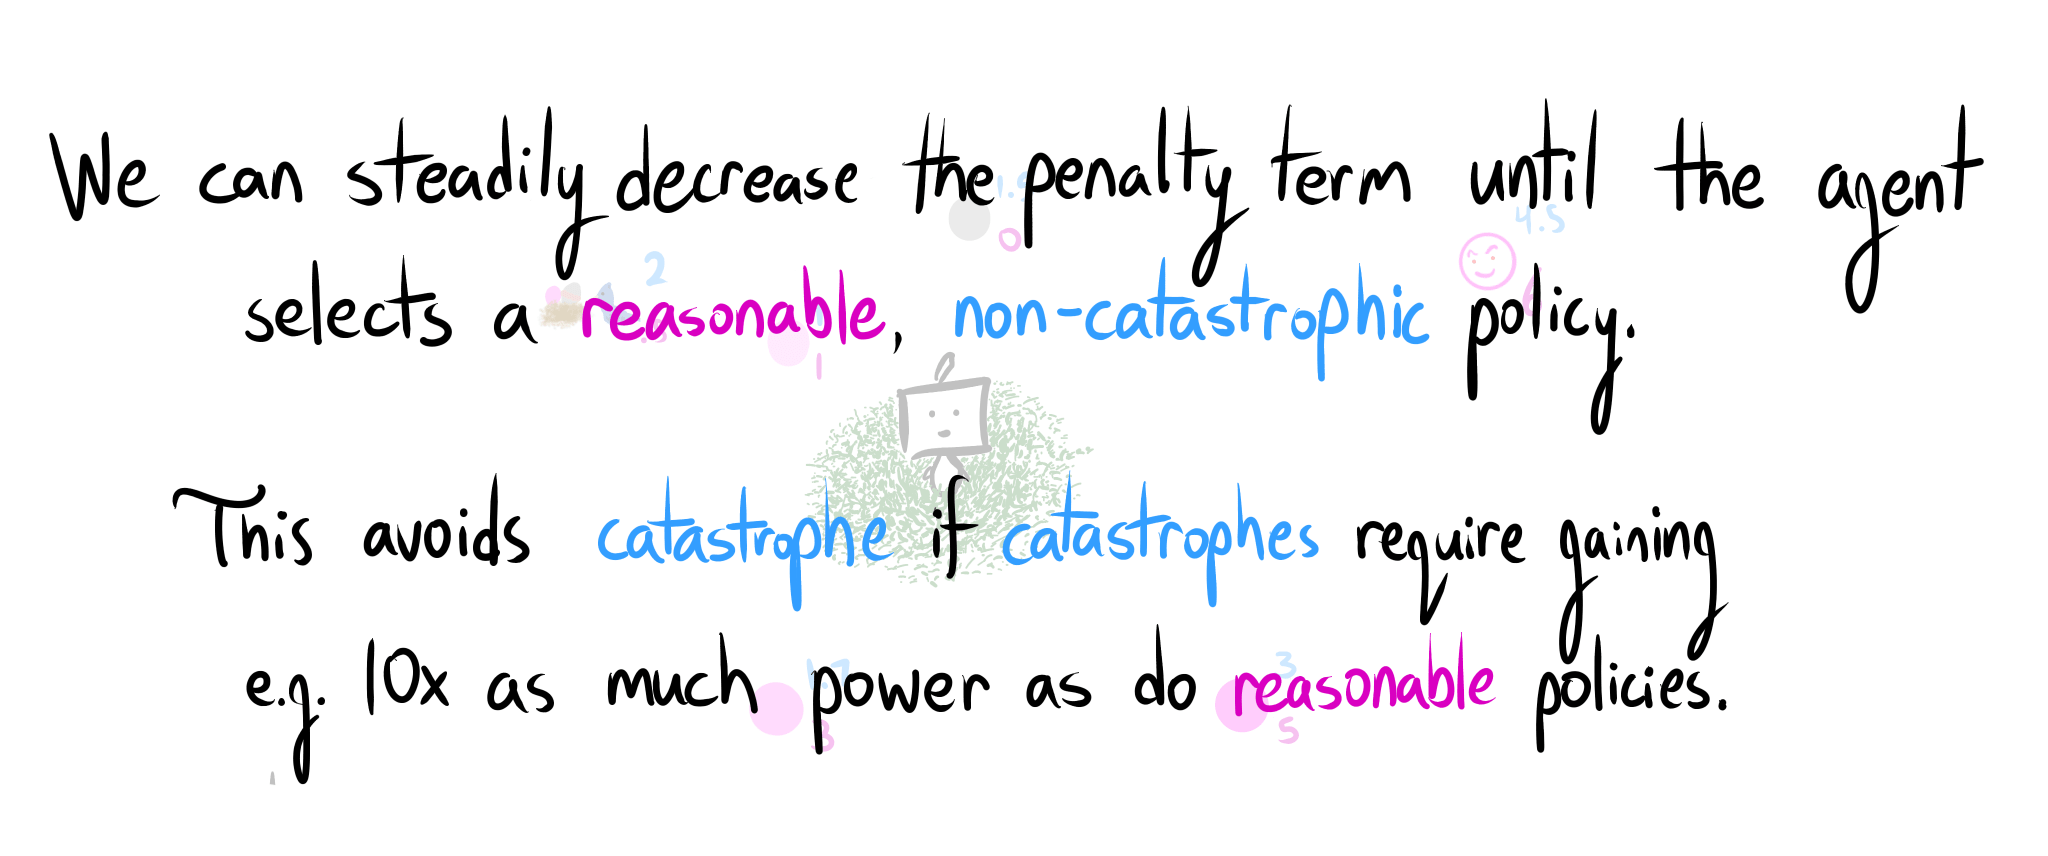 We can steadily decrease the penalty term until the agent
selects a reasonable, non-catastrophic policy.
This avoids catastrophe if catastrophes require gaining
e.g. 10x as much power as do reasonable policies.
4.5
0
2
1
3
3
5